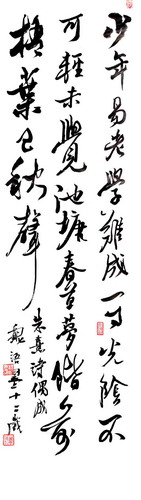 少年易老學難成一寸光陰不
可輕未覺池塘春草夢階前
梧葉已秋聲
朱熹詩偶成